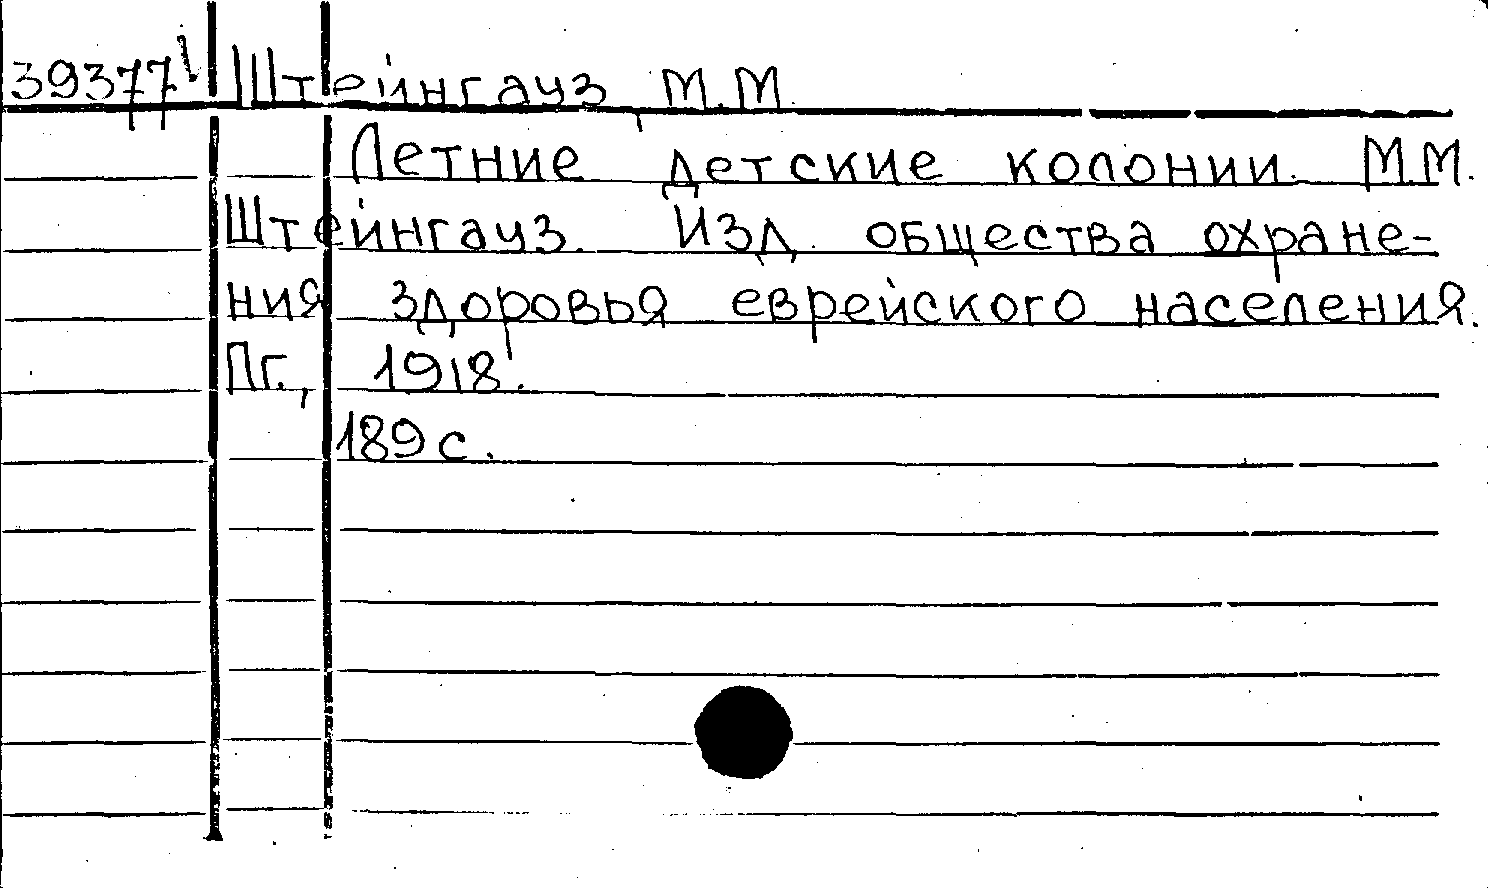 39377 Штейнгауз М.М.
Летние детские колонии. М.М.
Штейнгауз. Изд. общества охране-
ния здоровья еврейского населения.
Пг., 1918.
189 с.